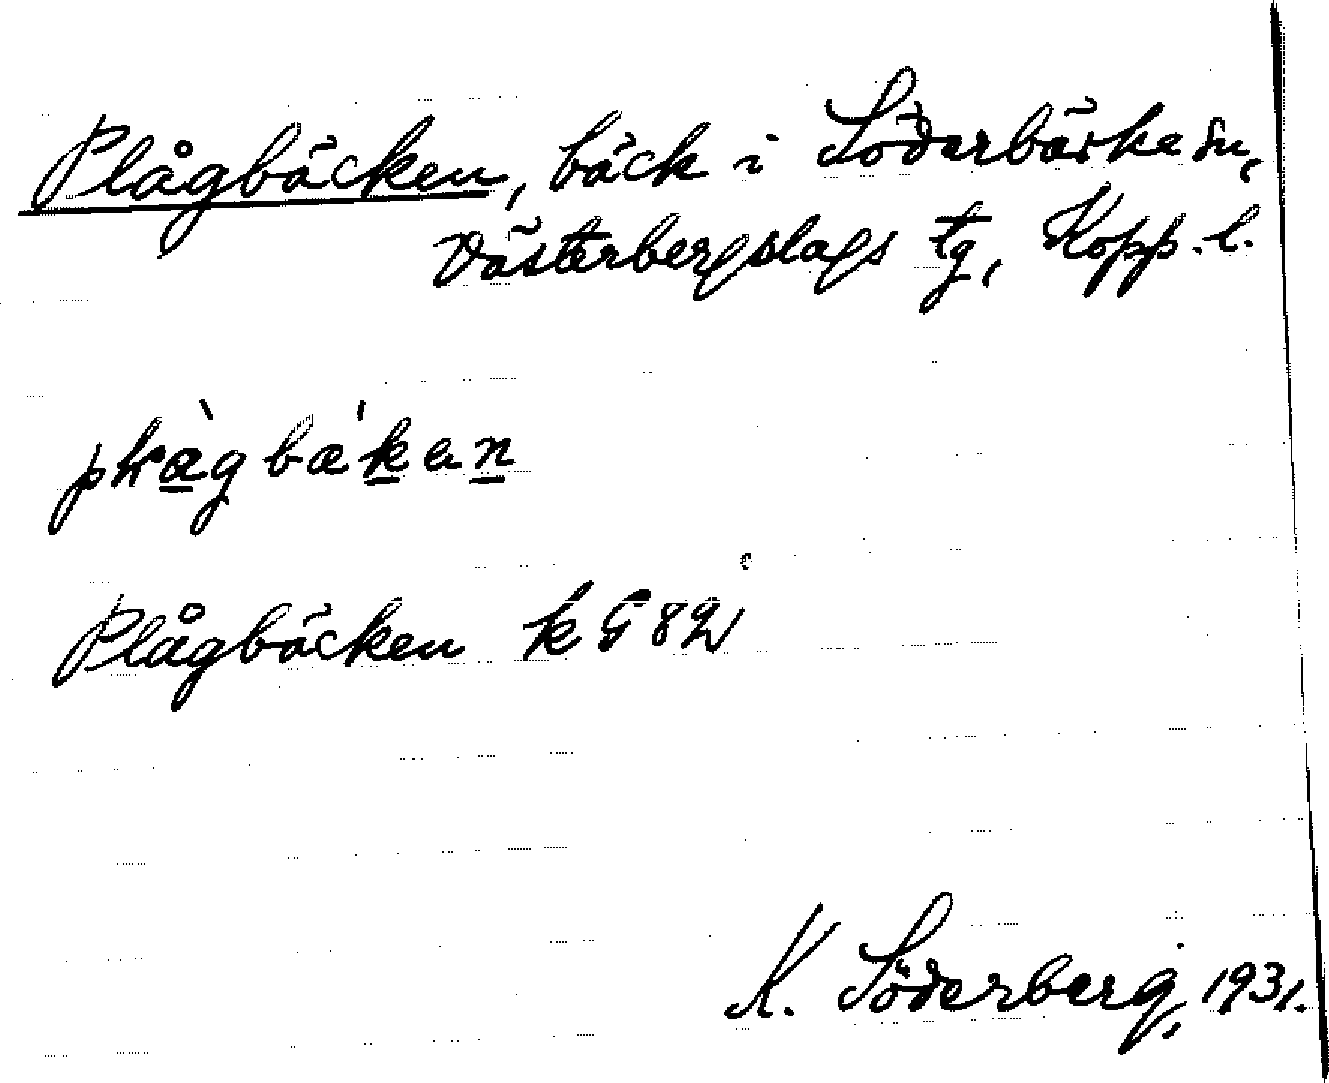 Plågbäcken, bäck i Söderbärke sn,
Västerbergslags tg, Kopp. l.
Plågbäcken k G 82
K. Söderberg, 1931.